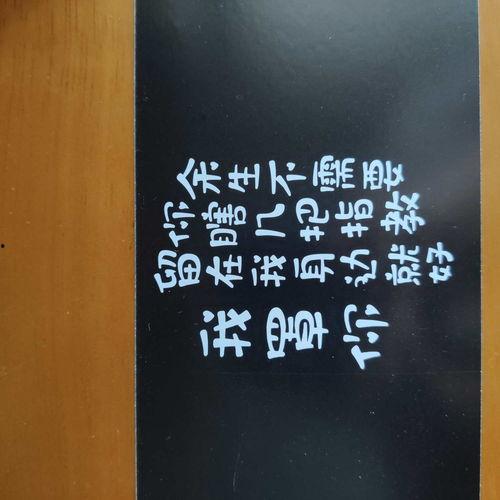 余生不需要
你瞎几把指教
留在我身边就好
我罩你